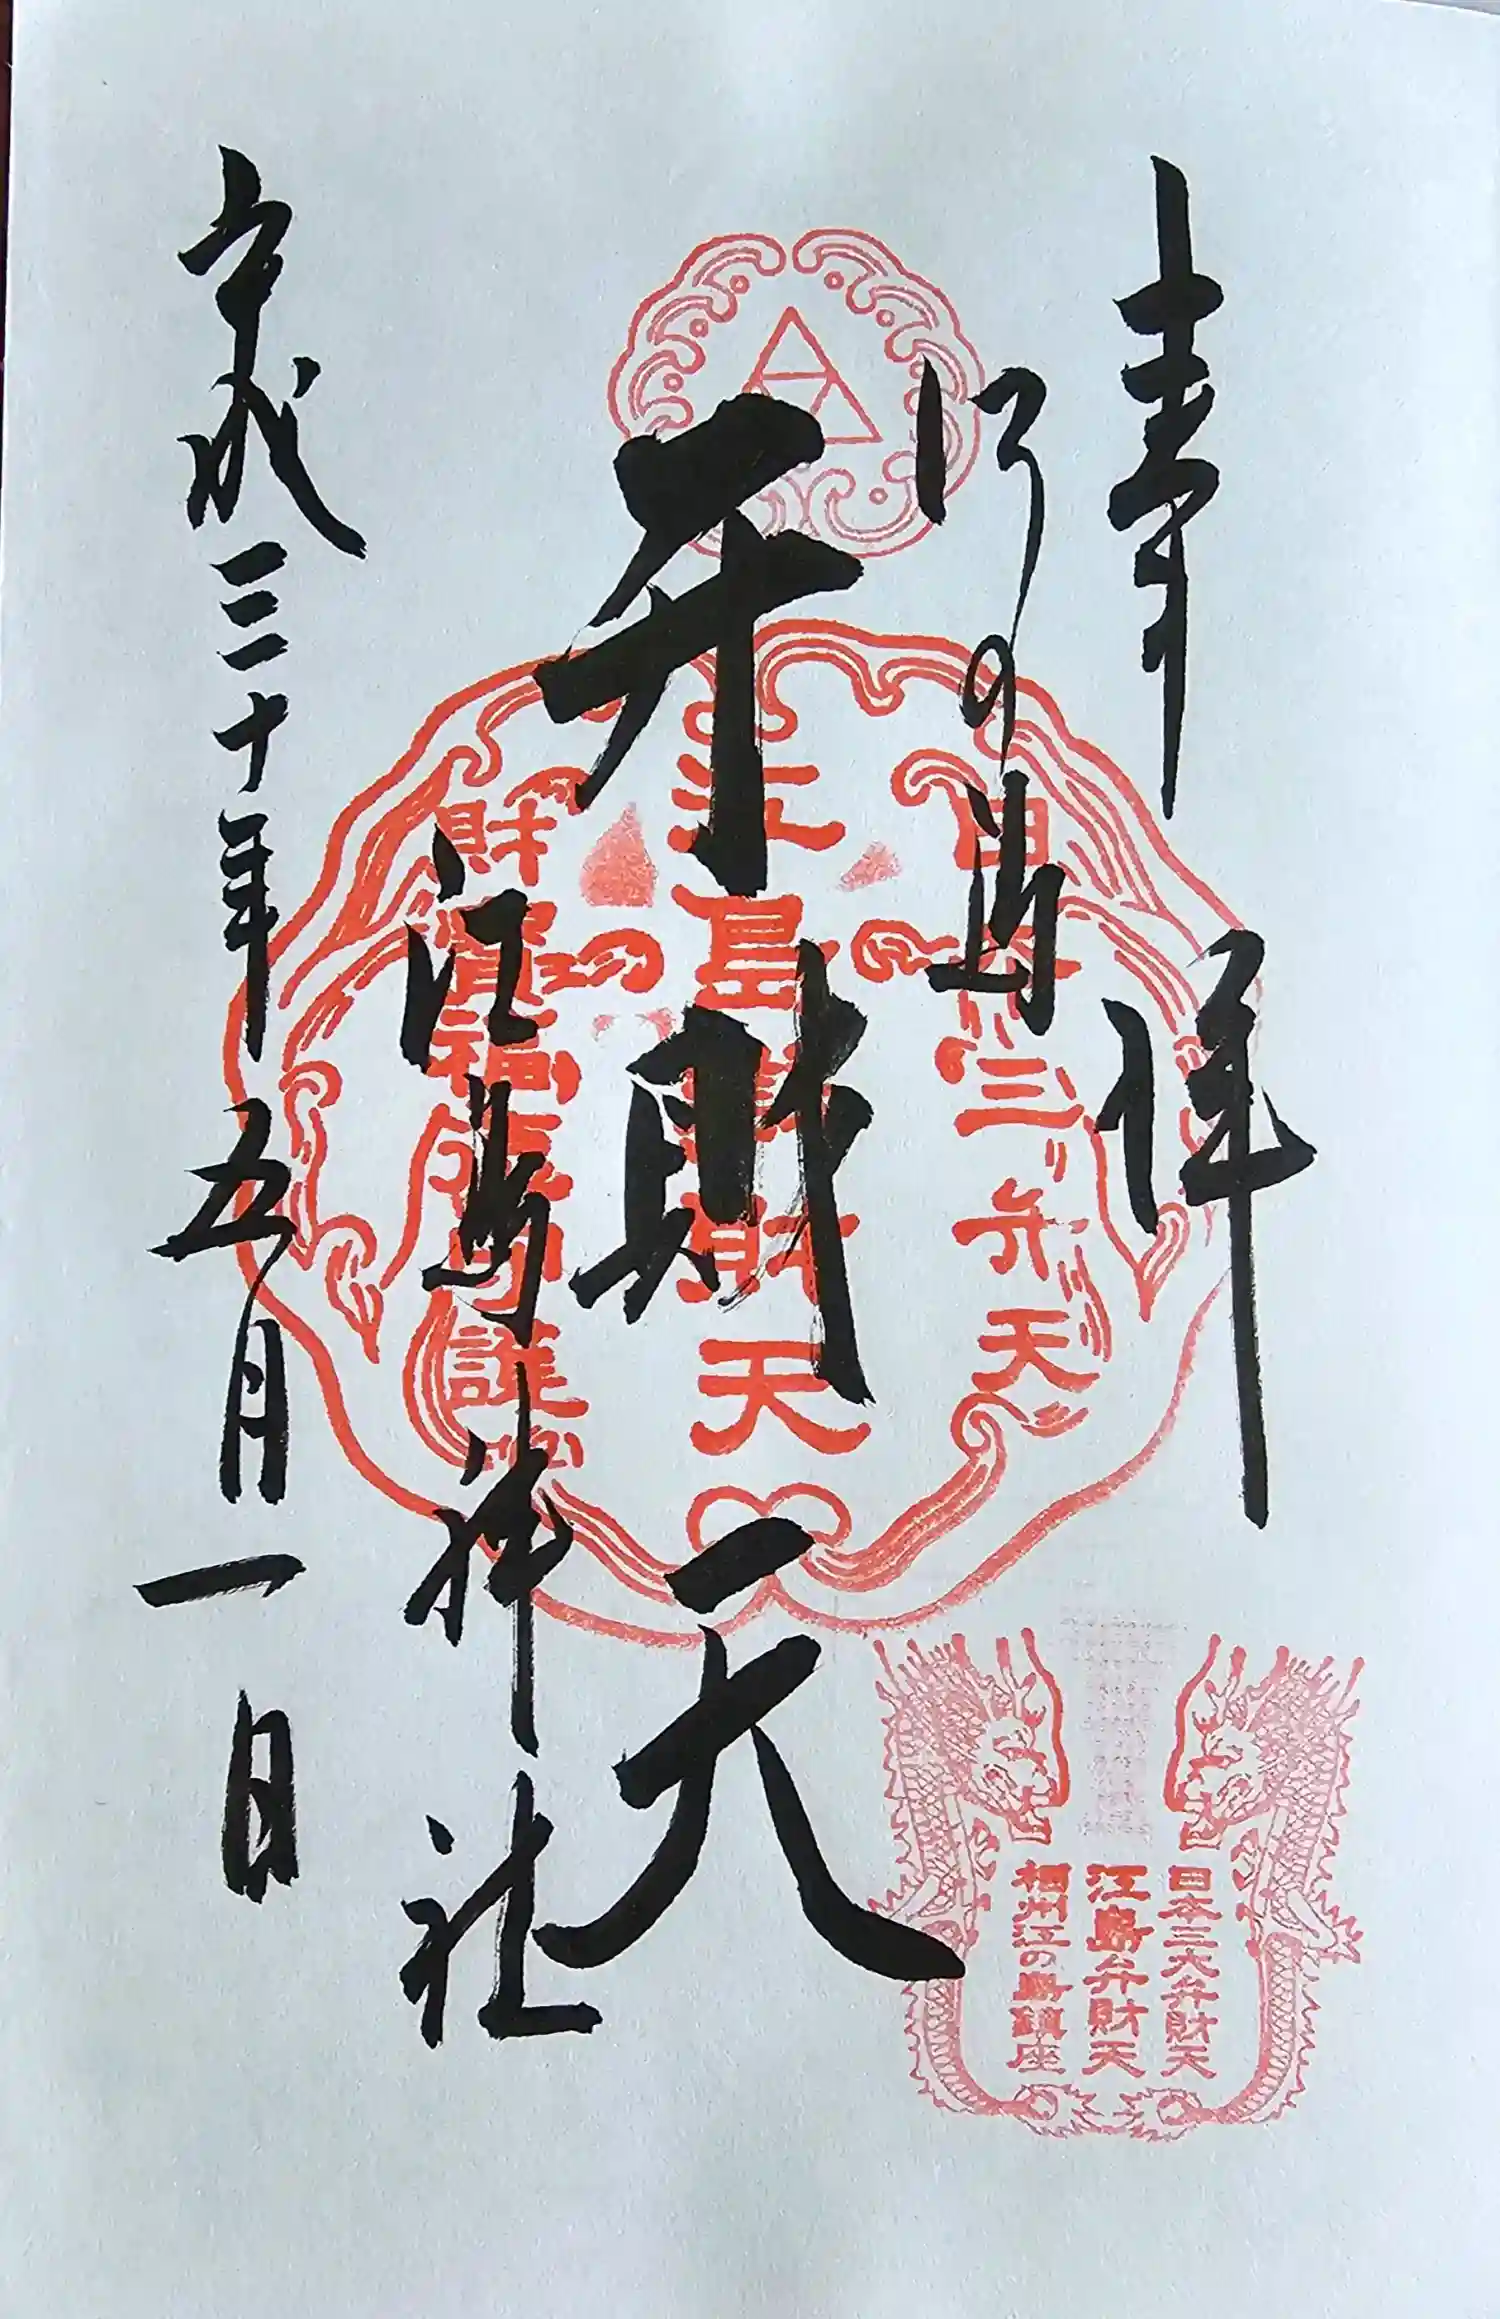 奉拝
江の島
弁財天
江島神社
平成三十年五月一日
日本三弁天
江島弁財天
財寶福徳守護
日本三大弁財天
江島弁財天
相州江の島鎮座